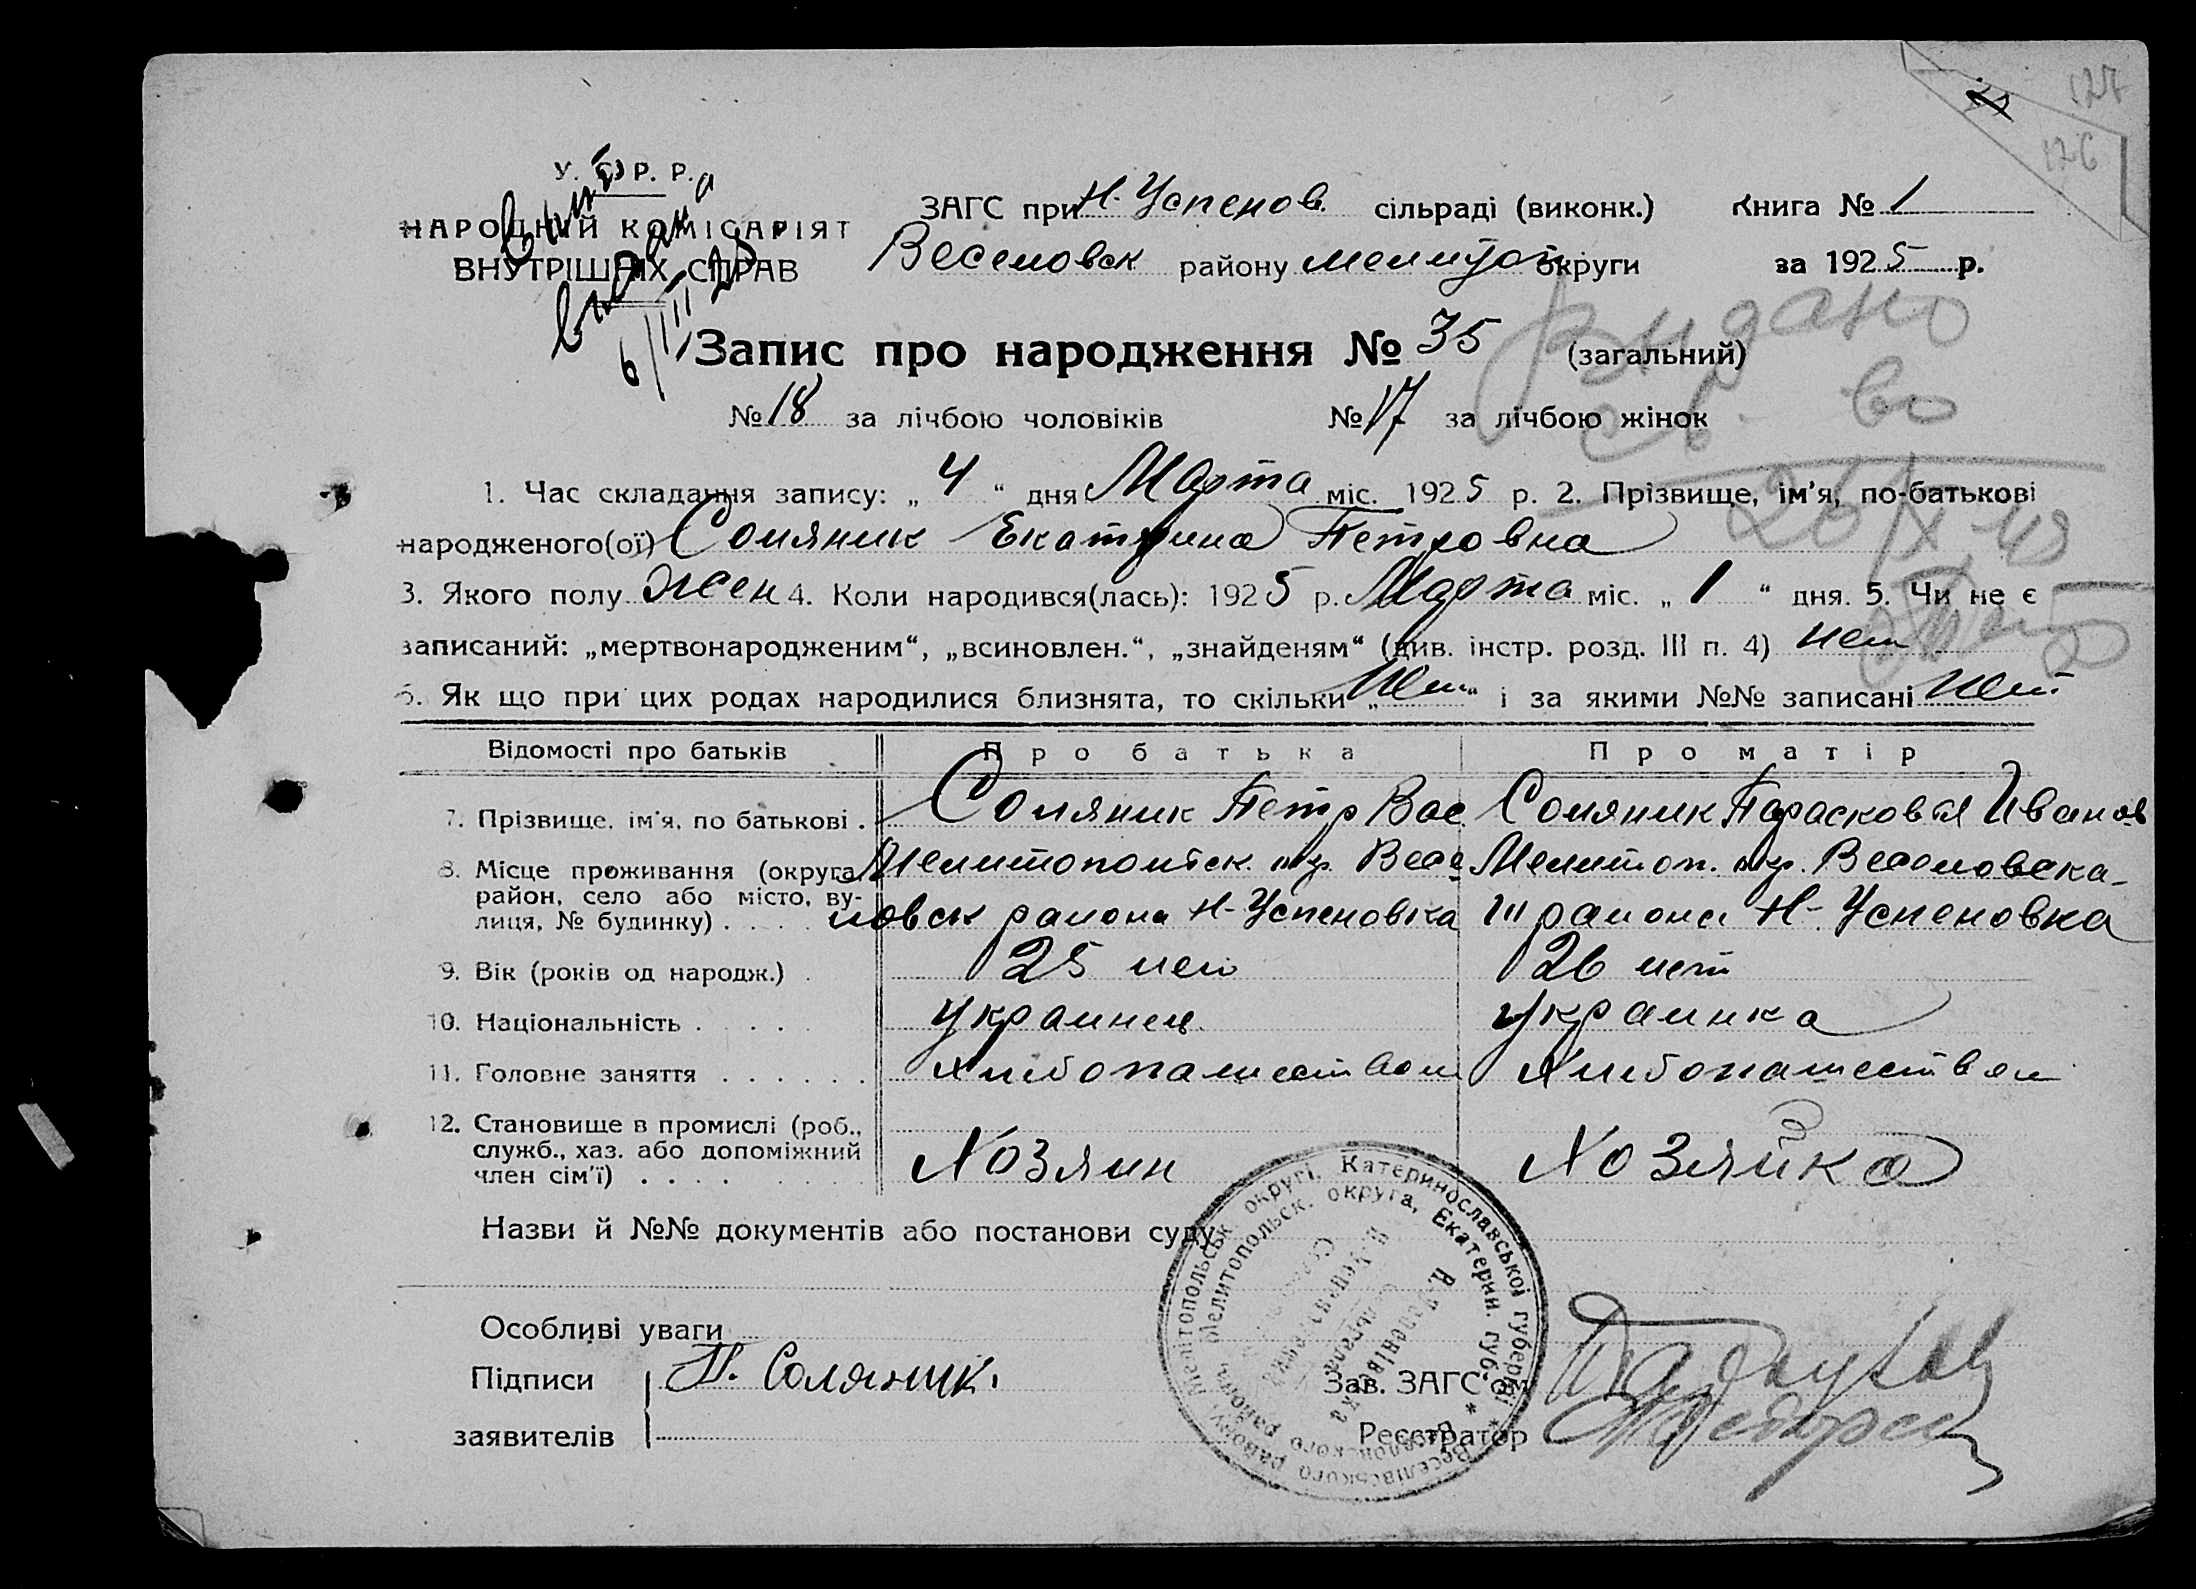 127
126
У. С. Р. Р.
НАРОДНИЙ КОМІСАРІЯТ
ВНУТРІШНІХ СПРАВ
ЗАГС при Н-Успенов. сільраді (виконк.) Книга № 1
Веселовск району Мелитоп округи за 1925 р.
Запис про народження № 35 (загальний)
Видано
св-во
№ 18 за лічбою чоловіків № 17 за лічбою жінок
1. Час складання запису: „ 4 “ дня Марта міс. 1925 р. 2. Прізвище, ім'я, по-батькові
народженого(ої) Соляник Екатярина Петровна
3. Якого полу жен 4. Коли народився(лась): 1925 р. Марта міс. „ 1 “ дня. 5. Чи не є
записаний: „мертвонародженим“, „всиновлен.“, „знайденям“ (див. інстр. розд. III п. 4) нет
6. Як що при цих родах народилися близнята, то скільки „ Нет “ і за якими №№ записані Нет
Відомості про батьків Про батька Про матір
7. Прізвище, ім'я, по батькові . Соляник Петр Вас. Соляник Парасковія Иванов
8. Місце проживання (округа, Мелитопольск. окр. Весе- Мелитоп. окр. Веселовска-
район, село або місто, ву-
лиця, № будинку) . . . . ловск района Н-Успеновка района Н-Успеновка
9. Вік (років од народж.) . 25 лет 26 лет
10. Національність . . . . украинец украинка
11. Головне заняття . . . . . . Хлибопашеством Хлибопашеством
12. Становище в промислі (роб.,
служб., хаз. або допоміжний
член сім'ї) . . . . Хозяин Хозяйка
Назви й №№ документів або постанови суду
Мелітопольськ. округі, Катеринославської губернії * Веселівського району
Мелитопольск. округа, Екатерин. губ. * Веселовского района,
Особливі уваги
Підписи П. Соляник. Зав. ЗАГС'ом
заявителів Реєстратор